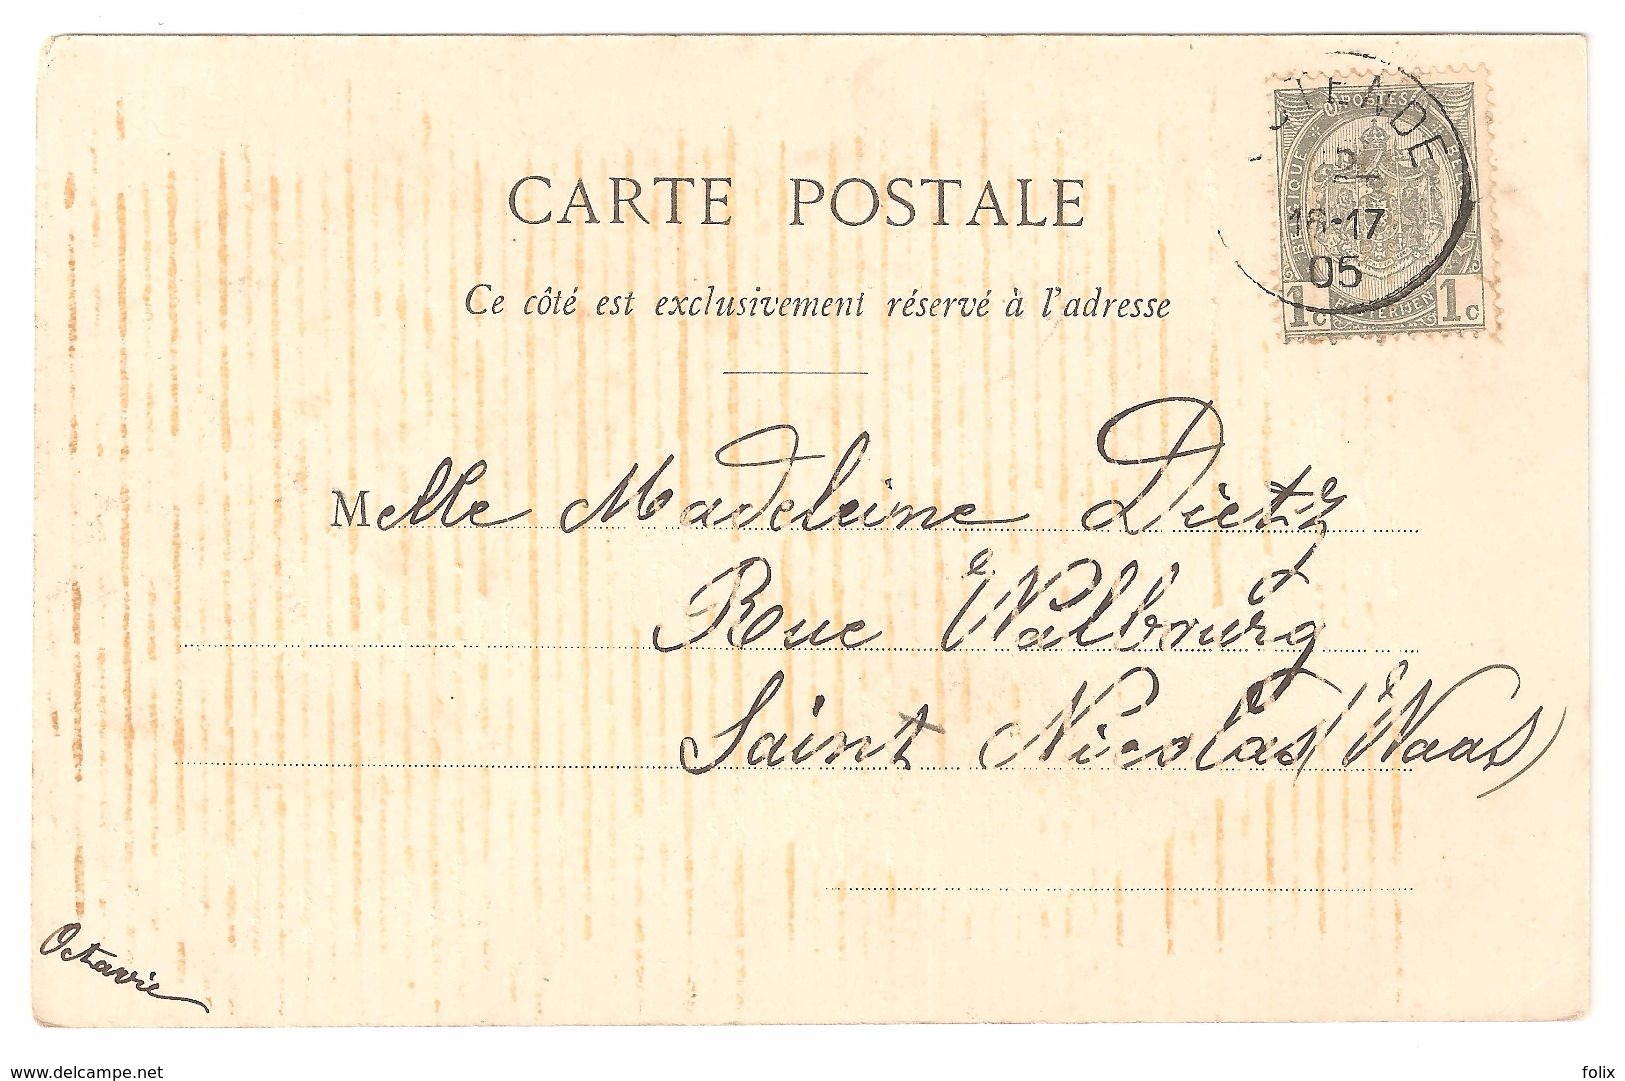 CARTE POSTALE
Ce côté est exclusivement réservé à l'adresse
TENDE
2
16-17
05
BELGIQUE * Cᴺ POSTES * BELGIË
1c POSTERIJEN 1c
Melle Madeleine Dietz
Rue Walbourg
Saint Nicolas (Waas)
Octavie
www.delcampe.net
felix